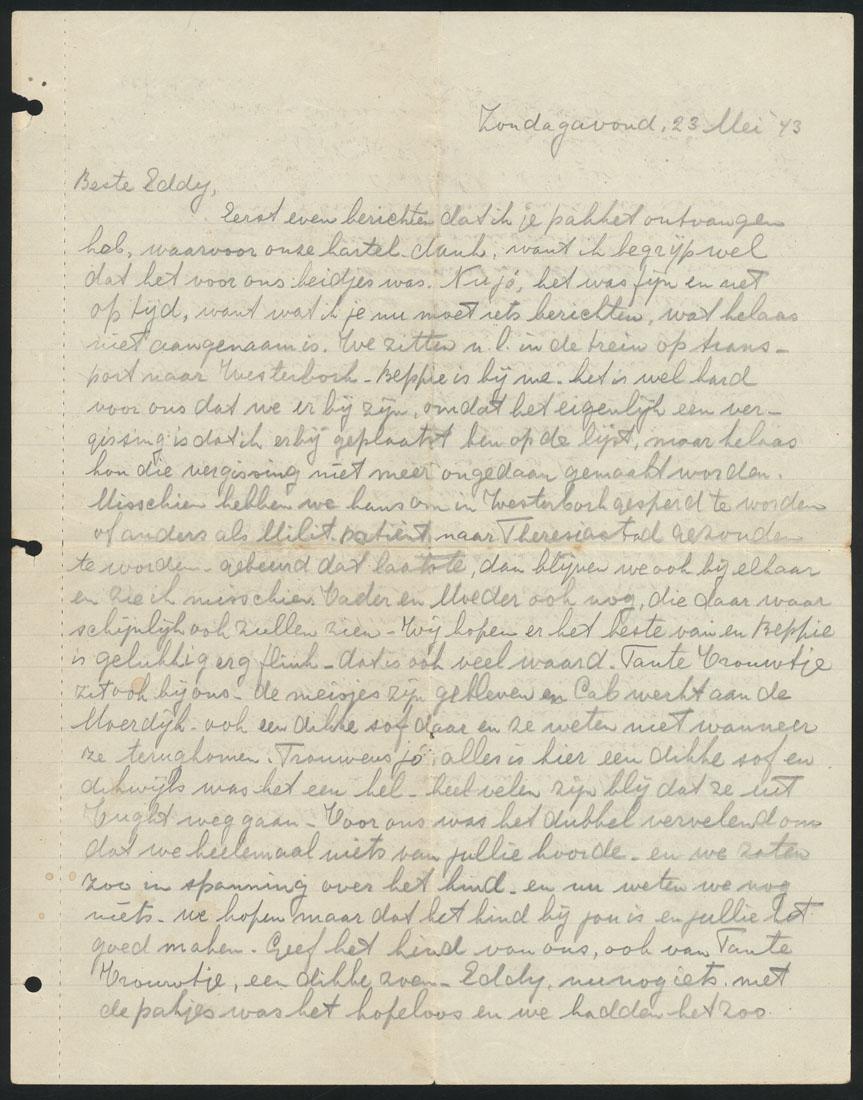 Zondagavond, 23 Mei '43
Beste Eddy,
Eerst even berichten dat ik je pakket ontvangen
heb, waarvoor onze hartel. dank, want ik begrijp wel
dat het voor ons beidjes was. Nu jò, het was fijn en net
op tijd, want wat ik je nu moet iets berichten, wat helaas
niet aangenaam is. We zitten n.l. in de trein op trans-
port naar Westerbork - Beppie is bij me - het is wel hard
voor ons dat we er bij zijn, omdat het eigenlijk een ver-
gissing is dat ik erbij geplaatst ben op de lijst, maar helaas
kon die vergissing niet meer ongedaan gemaakt worden.
Misschien hebben we kans om in Westerbork gesperd te worden
of anders als Milit. patient naar Theresiastad gezonden
te worden - gebeurd dat laatste, dan blijven we ook bij elkaar
en zie ik misschien Vader en Moeder ook nog, die daar waar
schijnlijk ook zullen zien - Wij hopen er het beste van en Beppie
is gelukkig erg flink - dat is ook veel waard. Tante Vrouwtje
zit ook bij ons - de meisjes zijn gebleven en Cab werkt aan de
Moerdijk - ook een dikke sof daar en ze weten niet wanneer
ze terugkomen. Trouwens jò, alles is hier een dikke sof en
dikwijls was het een hel - heel velen zijn blij dat ze uit
Vught weg gaan - Voor ons was het dubbel vervelend om
dat we heelemaal niets van jullie hoorde - en we zaten
zoo in spanning over het kind - en nu weten we nog
niets - we hopen maar dat het kind bij jou is en jullie het
goed maken - Geef het kind van ons, ook van Tante
Vrouwtje, een dikke zoen - Eddy, nu nog iets, met
de pakjes was het hopeloos en we hadden het zoo